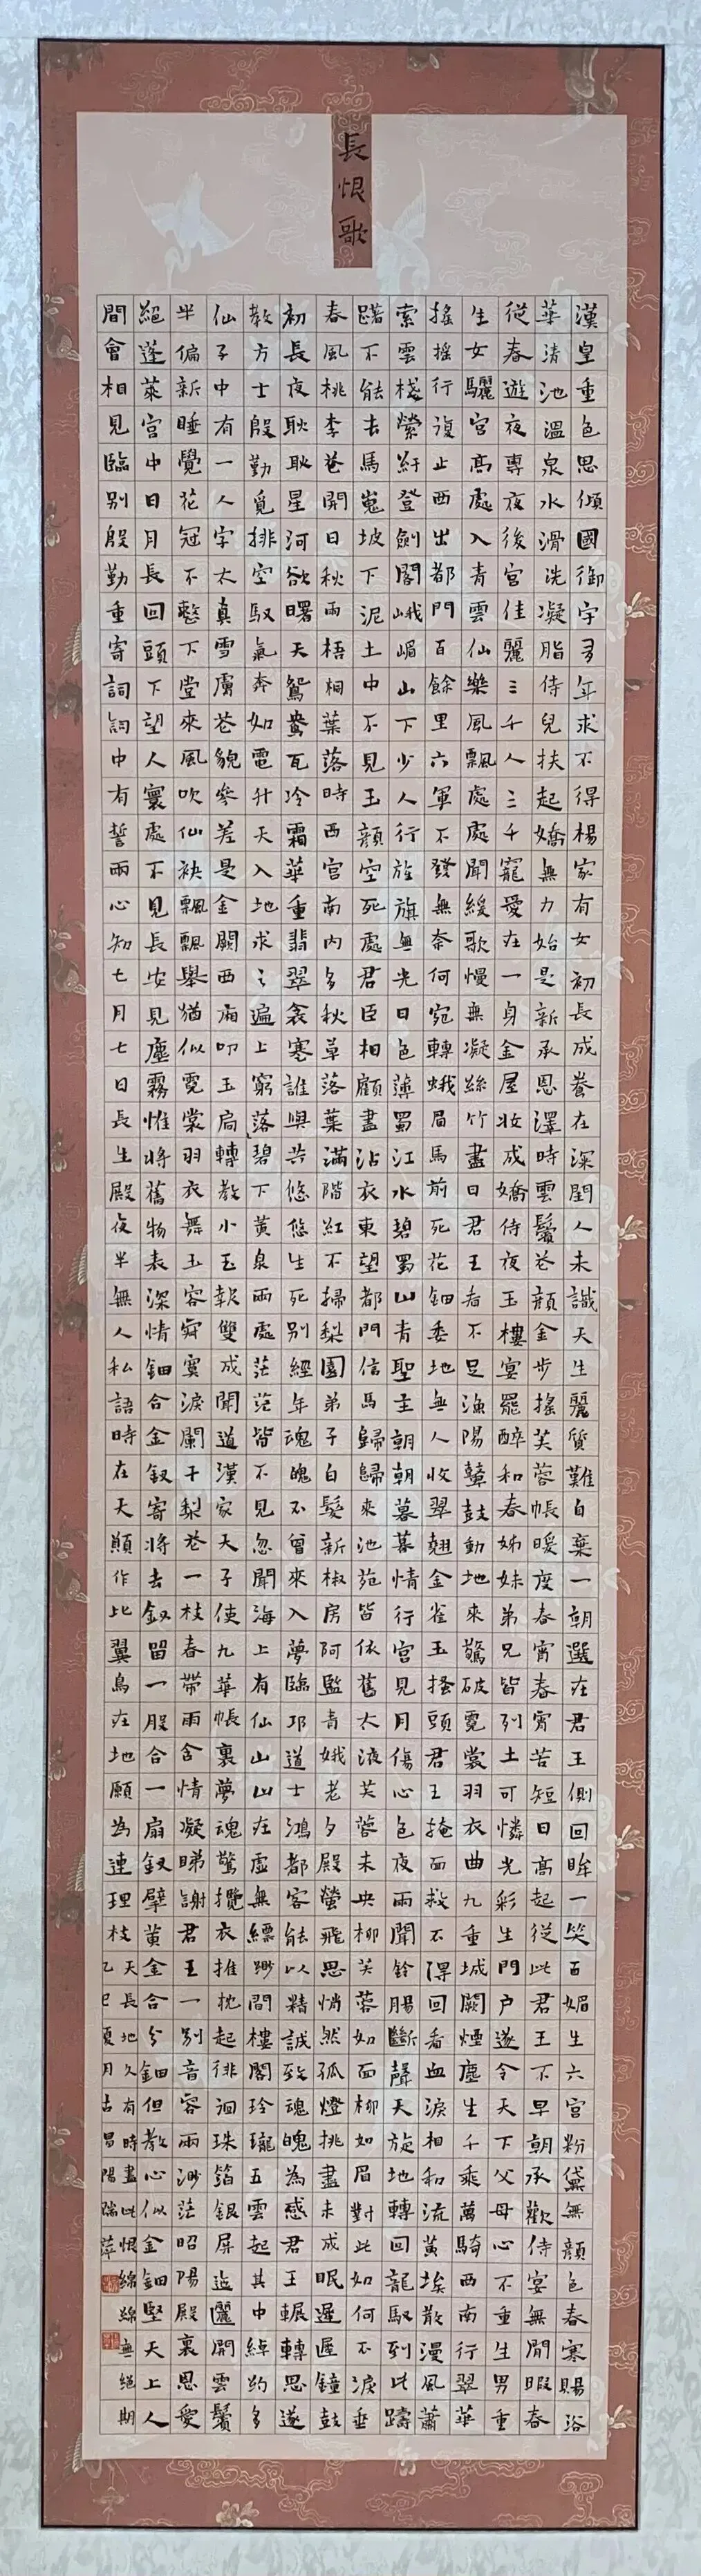 長恨歌
漢皇重色思傾國御宇多年求不得楊家有女初長成養在深閨人未識天生麗質難自棄一朝選在君王側回眸一笑百媚生六宮粉黛無顏色春寒賜浴
華清池溫泉水滑洗凝脂侍兒扶起嬌無力始是新承恩澤時雲鬢花顏金步搖芙蓉帳暖度春宵春宵苦短日高起從此君王不早朝承歡侍宴無閒暇春
從春遊夜專夜後宮佳麗三千人三千寵愛在一身金屋妝成嬌侍夜玉樓宴罷醉和春姊妹弟兄皆列土可憐光彩生門戶遂令天下父母心不重生男重
生女驪宮高處入青雲仙樂風飄處處聞緩歌慢舞凝絲竹盡日君王看不足漁陽鼙鼓動地來驚破霓裳羽衣曲九重城闕煙塵生千乘萬騎西南行翠華
搖搖行復止西出都門百餘里六軍不發無奈何宛轉蛾眉馬前死花鈿委地無人收翠翹金雀玉搔頭君王掩面救不得回看血淚相和流黃埃散漫風蕭
索雲棧縈紆登劍閣峨嵋山下少人行旌旗無光日色薄蜀江水碧蜀山青聖主朝朝暮暮情行宮見月傷心色夜雨聞鈴腸斷聲天旋地轉回龍馭到此躊
躇不能去馬嵬坡下泥土中不見玉顏空死處君臣相顧盡沾衣東望都門信馬歸歸來池苑皆依舊太液芙蓉未央柳芙蓉如面柳如眉對此如何不淚垂
春風桃李花開日秋雨梧桐葉落時西宮南內多秋草落葉滿階紅不掃梨園弟子白髮新椒房阿監青娥老夕殿螢飛思悄然孤燈挑盡未成眠遲遲鐘鼓
初長夜耿耿星河欲曙天鴛鴦瓦冷霜華重翡翠衾寒誰與共悠悠生死別經年魂魄不曾來入夢臨邛道士鴻都客能以精誠致魂魄為感君王輾轉思遂
教方士殷勤覓排空馭氣奔如電升天入地求之遍上窮落碧下黃泉兩處茫茫皆不見忽聞海上有仙山山在虛無縹緲間樓閣玲瓏五雲起其中綽約多
仙子中有一人字太真雪膚花貌參差是金闕西廂叩玉扃轉教小玉報雙成聞道漢家天子使九華帳裏夢魂驚攬衣推枕起徘徊珠箔銀屏迤邐開雲鬢
半偏新睡覺花冠不整下堂來風吹仙袂飄飄舉猶似霓裳羽衣舞玉容寂寞淚闌干梨花一枝春帶雨含情凝睇謝君王一別音容兩渺茫昭陽殿裏恩愛
絕蓬萊宮中日月長回頭下望人寰處不見長安見塵霧惟將舊物表深情鈿合金釵寄將去釵留一股合一扇釵擘黃金合分鈿但教心似金鈿堅天上人
間會相見臨別殷勤重寄詞詞中有誓兩心知七月七日長生殿夜半無人私語時在天願作比翼鳥在地願為連理枝天長地久有時盡此恨綿綿無絕期
乙巳夏月古昌陽瑞萍